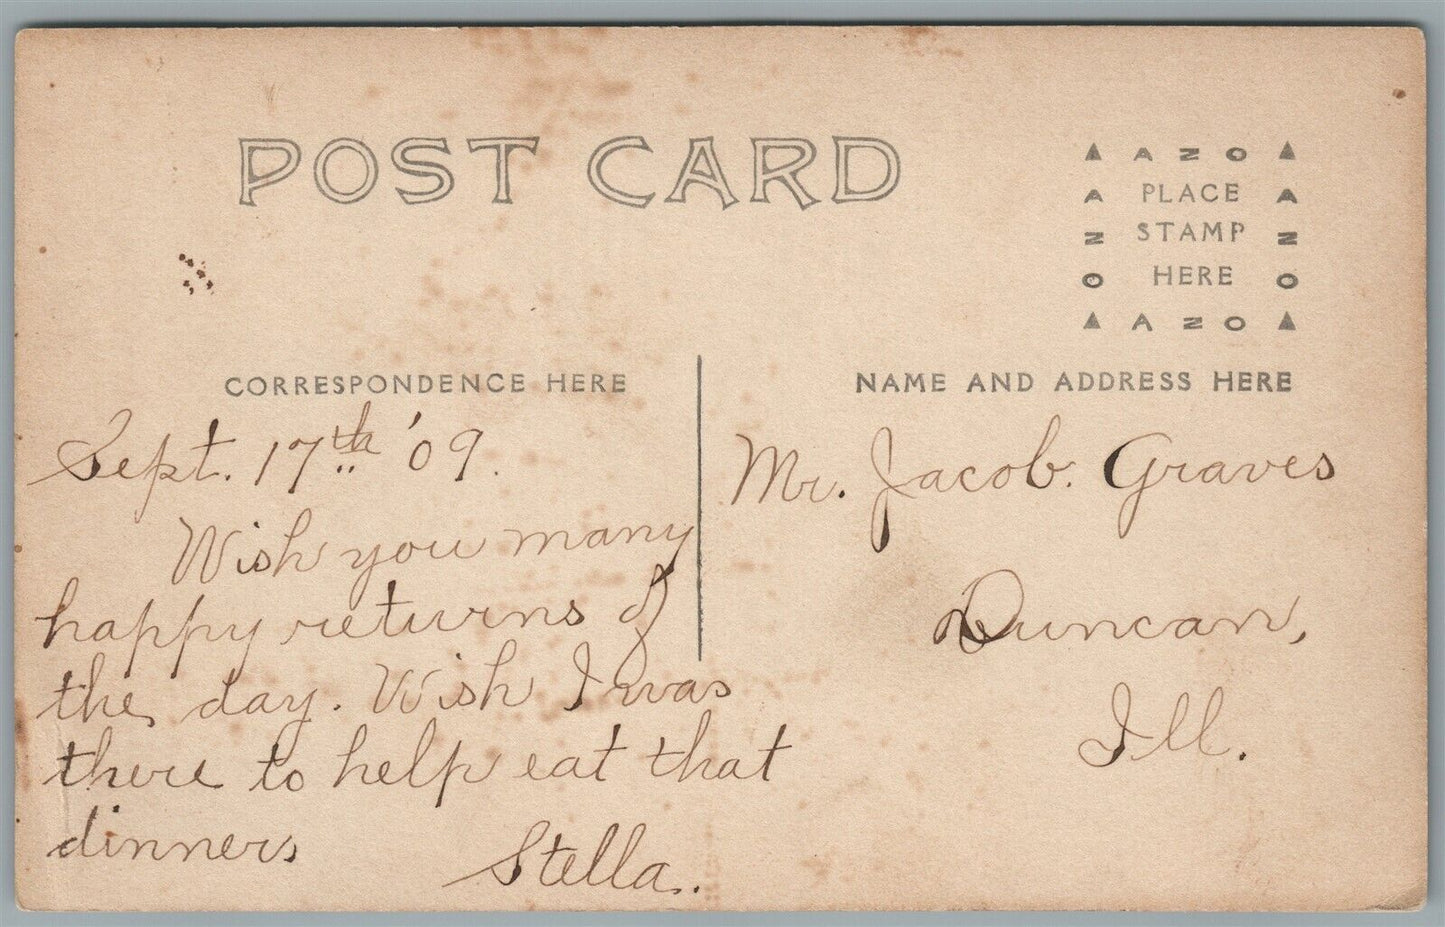 POST CARD
▲ A Z O ▲
A PLACE A
Z STAMP Z
O HERE O
▲ A Z O ▲
CORRESPONDENCE HERE
Sept. 17th '09.
Wish you many
happy returns of
the day. Wish I was
there to help eat that
dinner
Stella.
NAME AND ADDRESS HERE
Mr. Jacob. Graves
Duncan,
Ill.